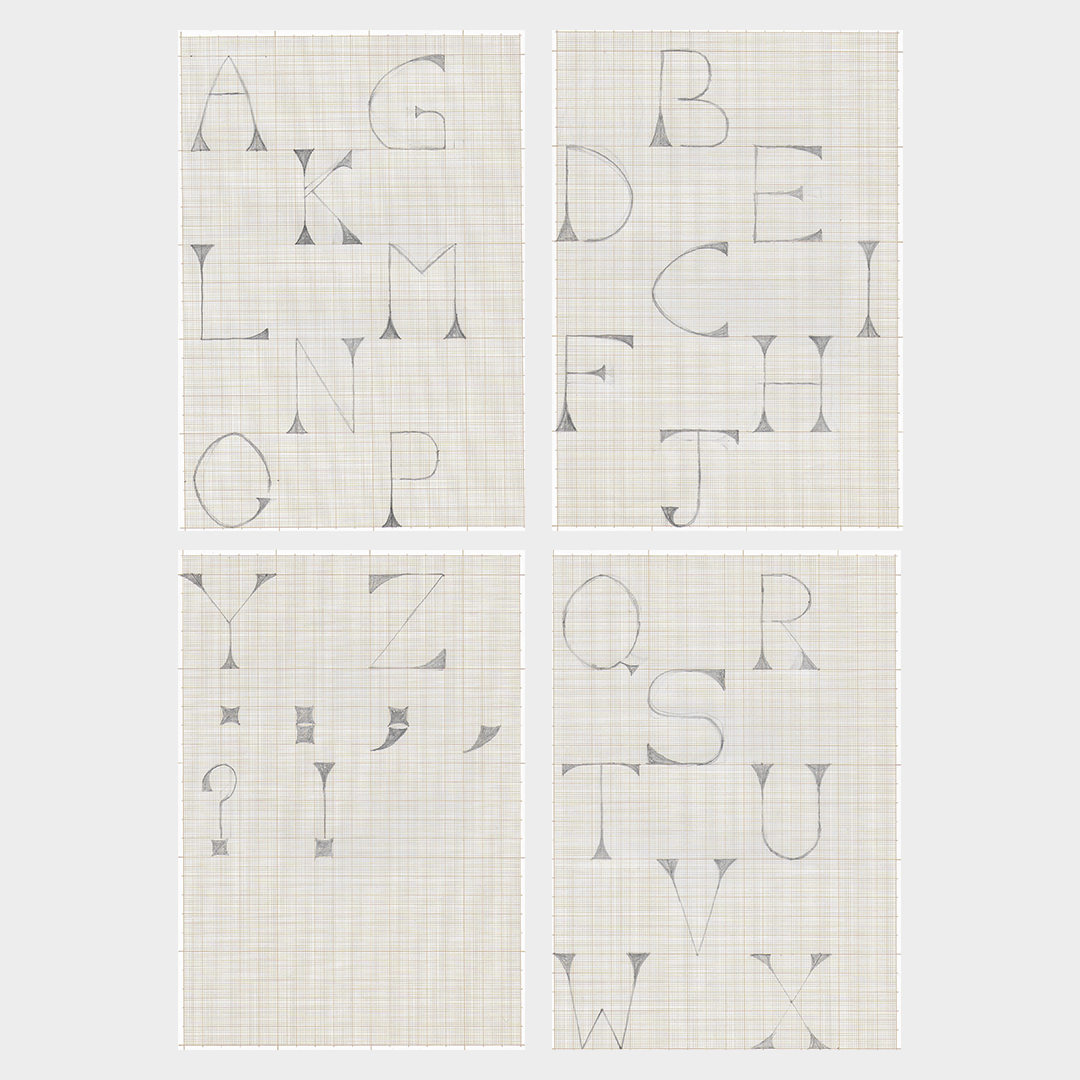 A G
K
L M
N
O P
B
D E
C I
F H
J
Y Z
. : ; ,
? !
Q R
S
T U
V
W X